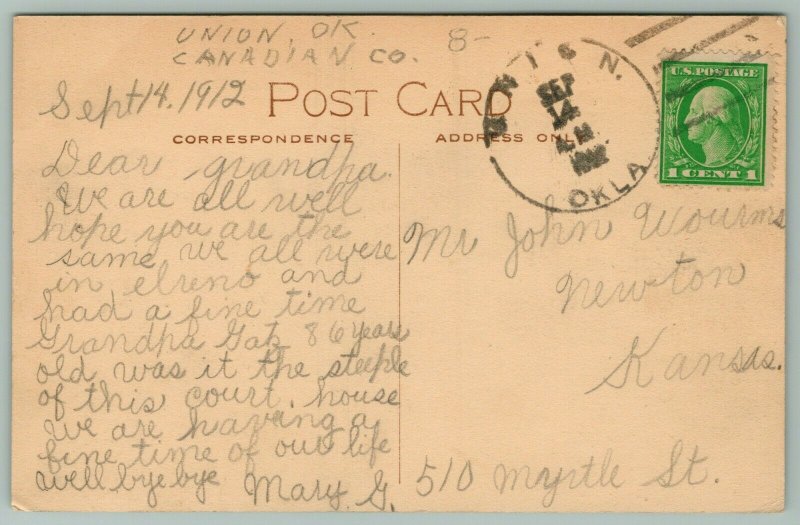 UNION, OK.
CANADIAN CO.
8-
Sept 14. 1912
POST CARD
CORRESPONDENCE
ADDRESS ONLY
Dear grandpa.
We are all well
hope you are the
same we all were
in elreno and
had a fine time
Grandpa Gatz 86 years
old was it the steeple
of this court, house
We are having a
fine time of our life
well bye bye Mary G.
UNION.
SEP
14
OKLA
U.S. POSTAGE
1 CENT 1
Mr John Wourms
Newton
Kansas.
510 Myrtle St.